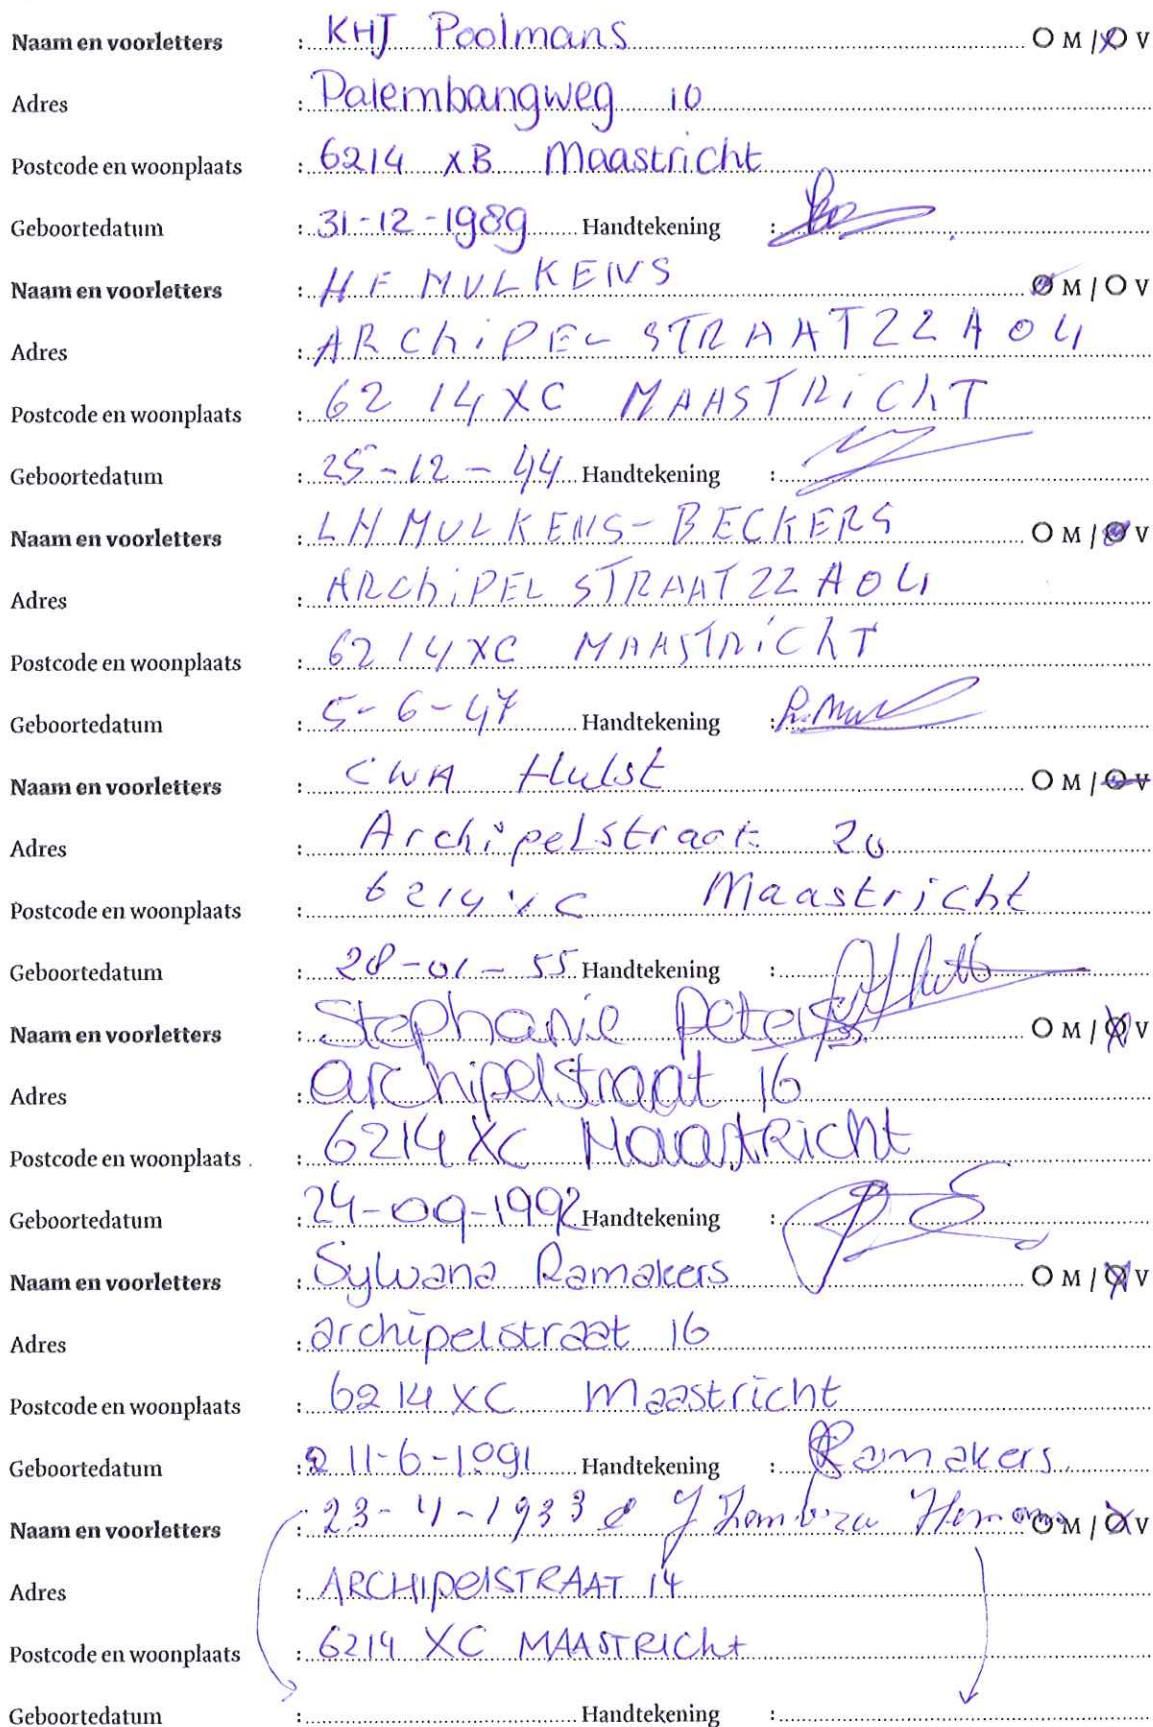 Naam en voorletters : KHJ Poolmans O M / O V
Adres : Palembangweg 10
Postcode en woonplaats : 6214 XB Maastricht
Geboortedatum : 31-12-1989 Handtekening :
Naam en voorletters : HF MULKENS O M / O V
Adres : ARChiPEL STRAAT 22 A 04
Postcode en woonplaats : 6214 XC MAASTRiChT
Geboortedatum : 25-12-44 Handtekening :
Naam en voorletters : LH MULKENS-BECKERS O M / O V
Adres : ARChiPEL STRAAT 22 A 04
Postcode en woonplaats : 6214 XC MAASTRiChT
Geboortedatum : 5-6-47 Handtekening :
Naam en voorletters : CWA Hulst O M / O V
Adres : Archipelstraat 20
Postcode en woonplaats : 6214 XC Maastricht
Geboortedatum : 28-01-55 Handtekening :
Naam en voorletters : Stephanie Peters O M / O V
Adres : archipelstraat 16
Postcode en woonplaats : 6214 XC Maastricht
Geboortedatum : 24-09-1992 Handtekening :
Naam en voorletters : Sylvana Ramakers O M / O V
Adres : archipelstraat 16
Postcode en woonplaats : 6214 XC Maastricht
Geboortedatum : 11-6-1991 Handtekening : Ramakers
Naam en voorletters : 23-4-1933 O M / O V
Adres : ARCHIPelSTRAAT 14
Postcode en woonplaats : 6214 XC MAASTRICht
Geboortedatum : Handtekening :